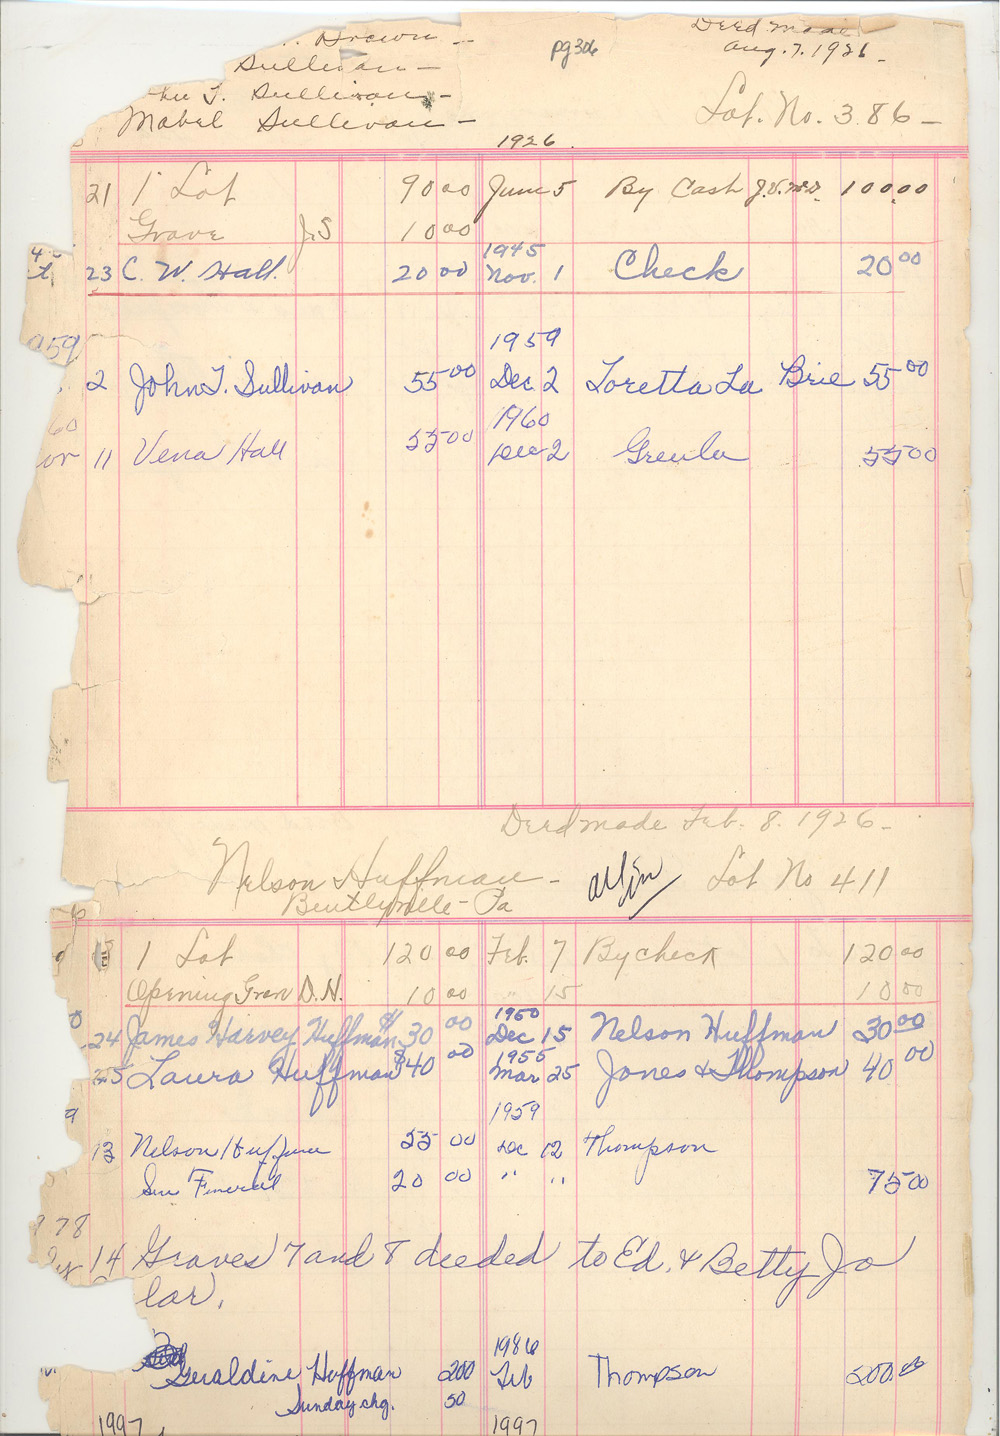 Brown - Deed made
Sullivan - pg 306 Aug. 7. 1926 -
T. Sullivan -
Mabel Sullivan - Lot. No. 386 -
1926.
21 1 Lot 90 00 June 5 By Cash 100.00
Grave J.S 10 00
1945
23 C. W. Hall. 20 00 Nov. 1 Check 20 00
959 1959
2 John T. Sullivan 55 00 Dec. 2 Loretta La Brie 55 00
60 1960
11 Vena Hall 55 00 Dec 2 55 00
Deed made Feb. 8. 1926 -
Nelson Huffman - Lot No 411
Bentleyville - Pa
1 Lot 120 00 Feb. 7 By check 120 00
Opening Grave D.H. 10 00 " 15 10 00
1950
24 James Harvey Huffman $30 00 Dec 15 Nelson Huffman 30 00
1955
25 Laura Huffman $40 00 Mar 25 Jones & Thompson 40 00
1959
13 Nelson Huffman 55 00 Dec 12 Thompson
Sun Funeral 20 00 " " 75 00
78
14 Graves 7 and 8 deeded to Ed. & Betty Jo
lar.
1986
Geraldine Huffman 200 Feb Thompson 200.00
Sunday chg. 50
1997, 1997